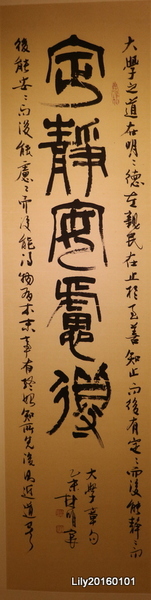 定靜安慮得
大學之道在明〻德在親民在止於至善知止而後有定〻而後能靜〻而
後能安〻而後能慮〻而後能得物有本末事有終始知所先後則近道矣
大學章句
Lily20160101